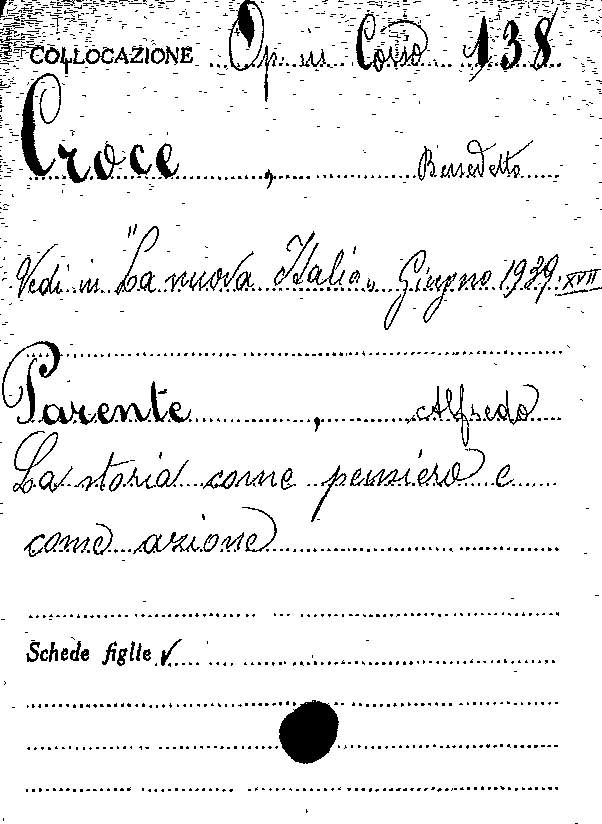 COLLOCAZIONE Op. in Corso 138
Croce , Benedetto
Vedi in "La nuova Italia„ Giugno 1939. XVII
Parente , Alfredo
La storia come pensiero e
come azione
Schede figlie ✓